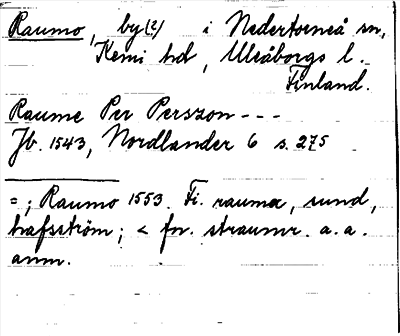 Raumo, by(?) i Nedertorneå sn,
Kemi hd, Uleåborgs l.
Finland.
Raume Per Perszon - - -
Jb. 1543, Nordlander 6 s. 275
= ; Raumo 1553. Fi. rauma, sund,
hafsström; < fn. straumr. a. a.
anm.